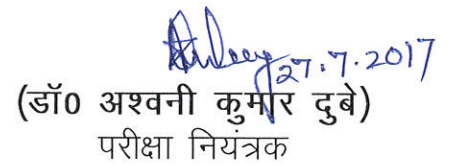 27.7.2017
(डॉ0 अश्वनी कुमार दुबे)
परीक्षा नियंत्रक